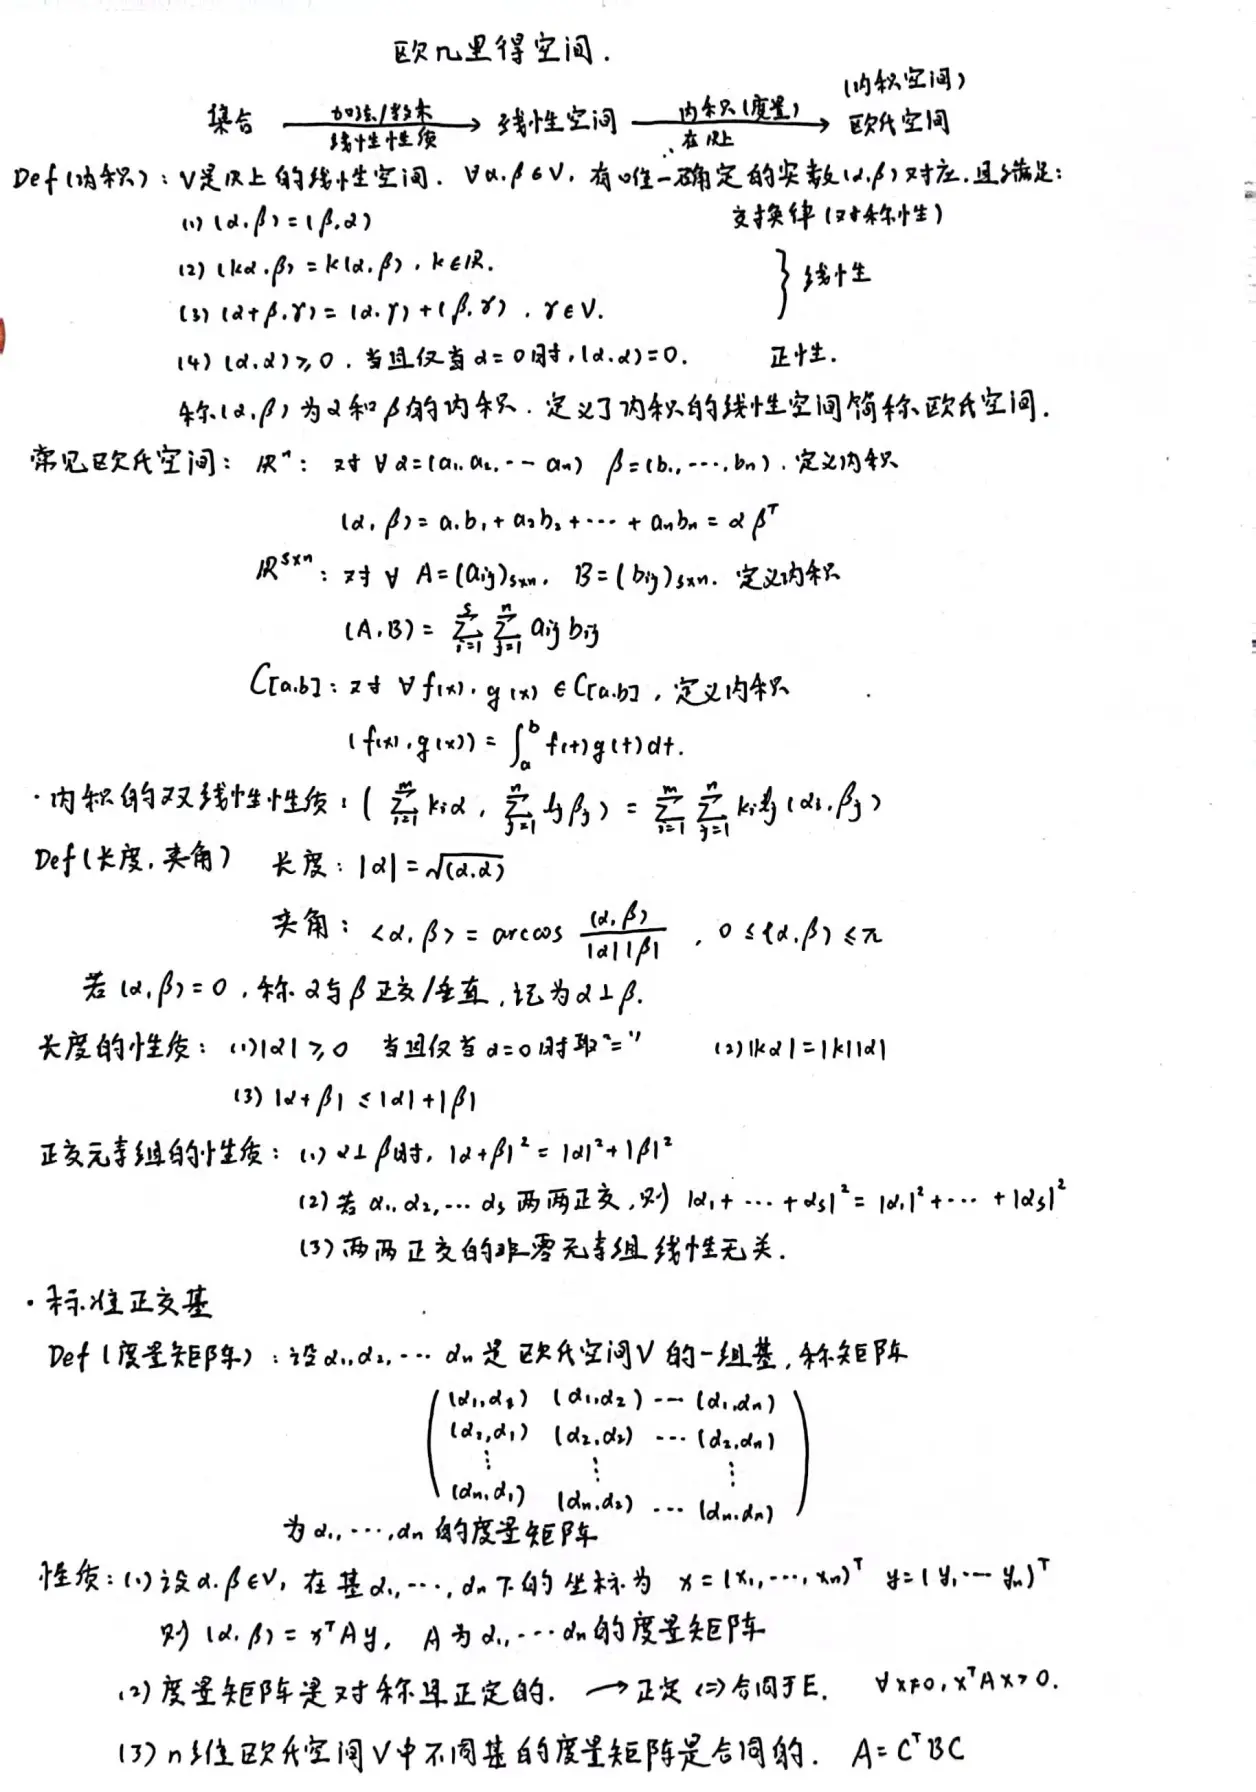 欧几里得空间.
集合 加法/数乘 线性性质 → 线性空间 内积(度量) 在ℝ上 → (内积空间) 欧氏空间
Def(内积): V是ℝ上的线性空间. ∀α.β∈V, 有唯一确定的实数(α.β)对应.且满足:
(1) (α.β)=(β.α) 交换律(对称性)
(2) (kα.β)=k(α.β), k∈ℝ.
} 线性
(3) (α+β.γ)=(α.γ)+(β.γ), γ∈V.
(4) (α.α)≥0. 当且仅当α=0时,(α.α)=0. 正性.
称(α.β)为α和β的内积. 定义了内积的线性空间简称欧氏空间.
常见欧氏空间: ℝⁿ: 对∀α=(a₁.a₂,⋯an) β=(b₁,⋯,bn). 定义内积
(α,β)=a₁b₁+a₂b₂+⋯+anbn=αβᵀ
ℝ^{s×n}: 对∀ A=(aij)s×n. B=(bij)s×n. 定义内积
(A.B)= ∑_{i=1}^{s} ∑_{j=1}^{n} aij bij
C[a.b]: 对∀f(x).g(x)∈C[a.b], 定义内积
(f(x).g(x))=∫_a^b f(t)g(t)dt.
·内积的双线性性质: (∑_{i=1}^{m} kiα, ∑_{j=1}^{n} ljβj) = ∑_{i=1}^{m} ∑_{j=1}^{n} kilj(αi.βj)
Def(长度,夹角) 长度: |α|=√(α.α)
夹角: <α,β>=arccos (α,β)/|α||β|, 0≤(α.β)≤π
若(α,β)=0, 称α与β正交/垂直,记为α⊥β.
长度的性质: (1)|α|≥0 当且仅当α=0时取"=" (2)|kα|=|k||α|
(3)|α+β|≤|α|+|β|
正交元素组的性质: (1)α⊥β时, |α+β|²=|α|²+|β|²
(2)若α₁,α₂,⋯αs两两正交,则 |α₁+⋯+αs|²=|α₁|²+⋯+|αs|²
(3)两两正交的非零元素组线性无关.
·标准正交基
Def(度量矩阵): 设α₁,α₂,⋯αn是欧氏空间V的一组基,称矩阵
(α₁,α₁) (α₁,α₂) ⋯ (α₁,αn)
(α₂,α₁) (α₂,α₂) ⋯ (α₂,αn)
⋮ ⋮ ⋮
(αn,α₁) (αn,α₂) ⋯ (αn.αn)
为α₁,⋯,αn的度量矩阵
性质:(1)设α.β∈V, 在基α₁,⋯,αn下的坐标为 x=(x₁,⋯,xn)ᵀ y=(y₁⋯yn)ᵀ
则(α.β)=xᵀAy, A为α₁,⋯αn的度量矩阵
(2)度量矩阵是对称且正定的. → 正定⇔合同于E. ∀x≠0, xᵀAx>0.
(3)n维欧氏空间V中不同基的度量矩阵是合同的. A=CᵀBC